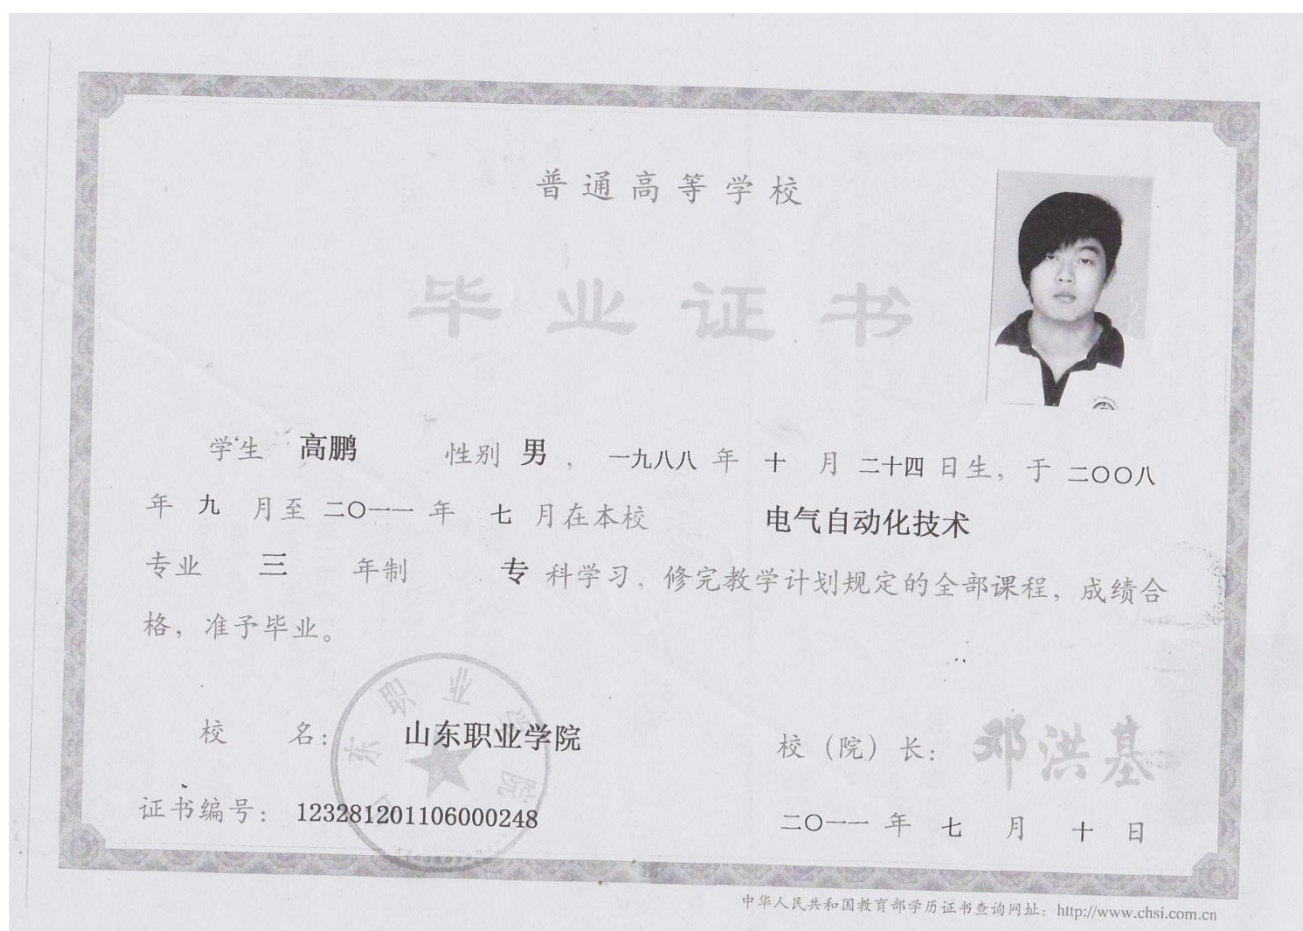 普通高等学校
毕业证书
学生 高鹏 性别 男，一九八八 年 十 月 二十四 日生，于 二〇〇八
年 九 月至 二〇一一 年 七 月在本校 电气自动化技术
专业 三 年制 专 科学习，修完教学计划规定的全部课程，成绩合
格，准予毕业。
校 名：山东职业学院
校（院）长：邓洪基
证书编号：123281201106000248
二〇一一 年 七 月 十 日
山东职业学院
中华人民共和国教育部学历证书查询网址：http://www.chsi.com.cn